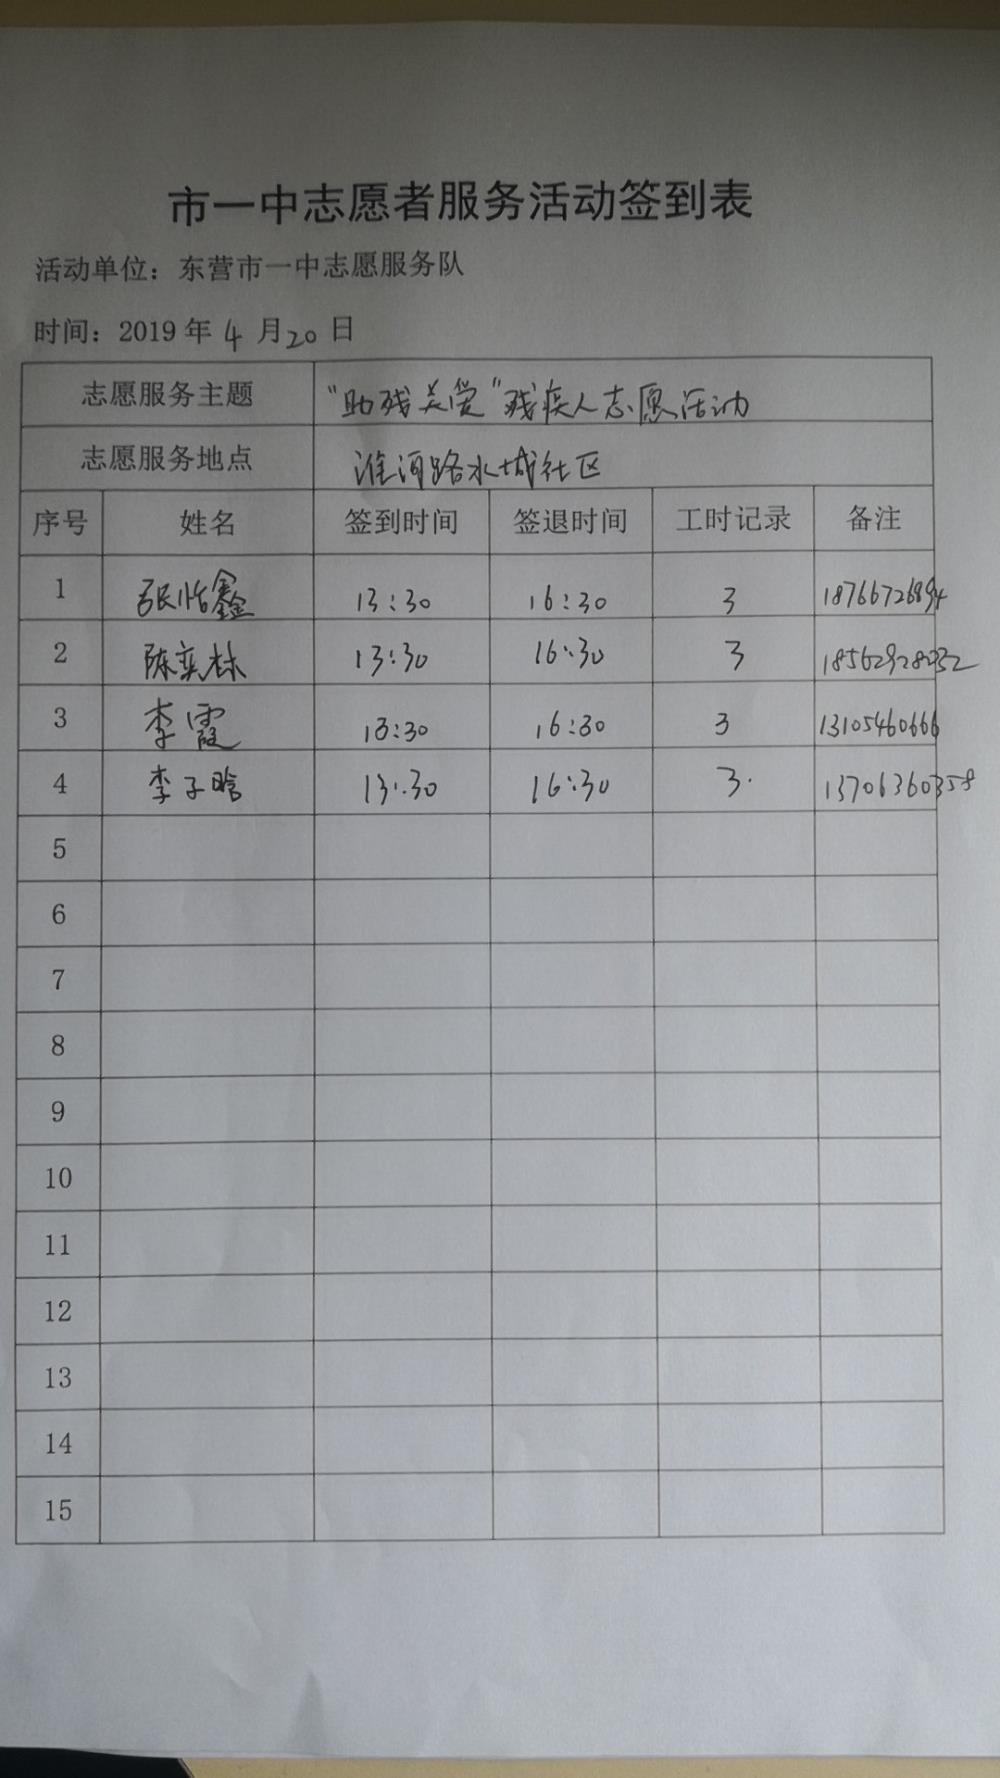 市一中志愿者服务活动签到表
活动单位：东营市一中志愿服务队
时间：2019年4月20日
志愿服务主题 “助残关爱”残疾人志愿活动
志愿服务地点 淮河路水城社区
序号 姓名 签到时间 签退时间 工时记录 备注
1 张怡鑫 13:30 16:30 3 18766726894
2 陈奕林 13:30 16:30 3
3 李霞 13:30 16:30 3 13105460666
4 李子晗 13:30 16:30 3. 13706360358
5
6
7
8
9
10
11
12
13
14
15